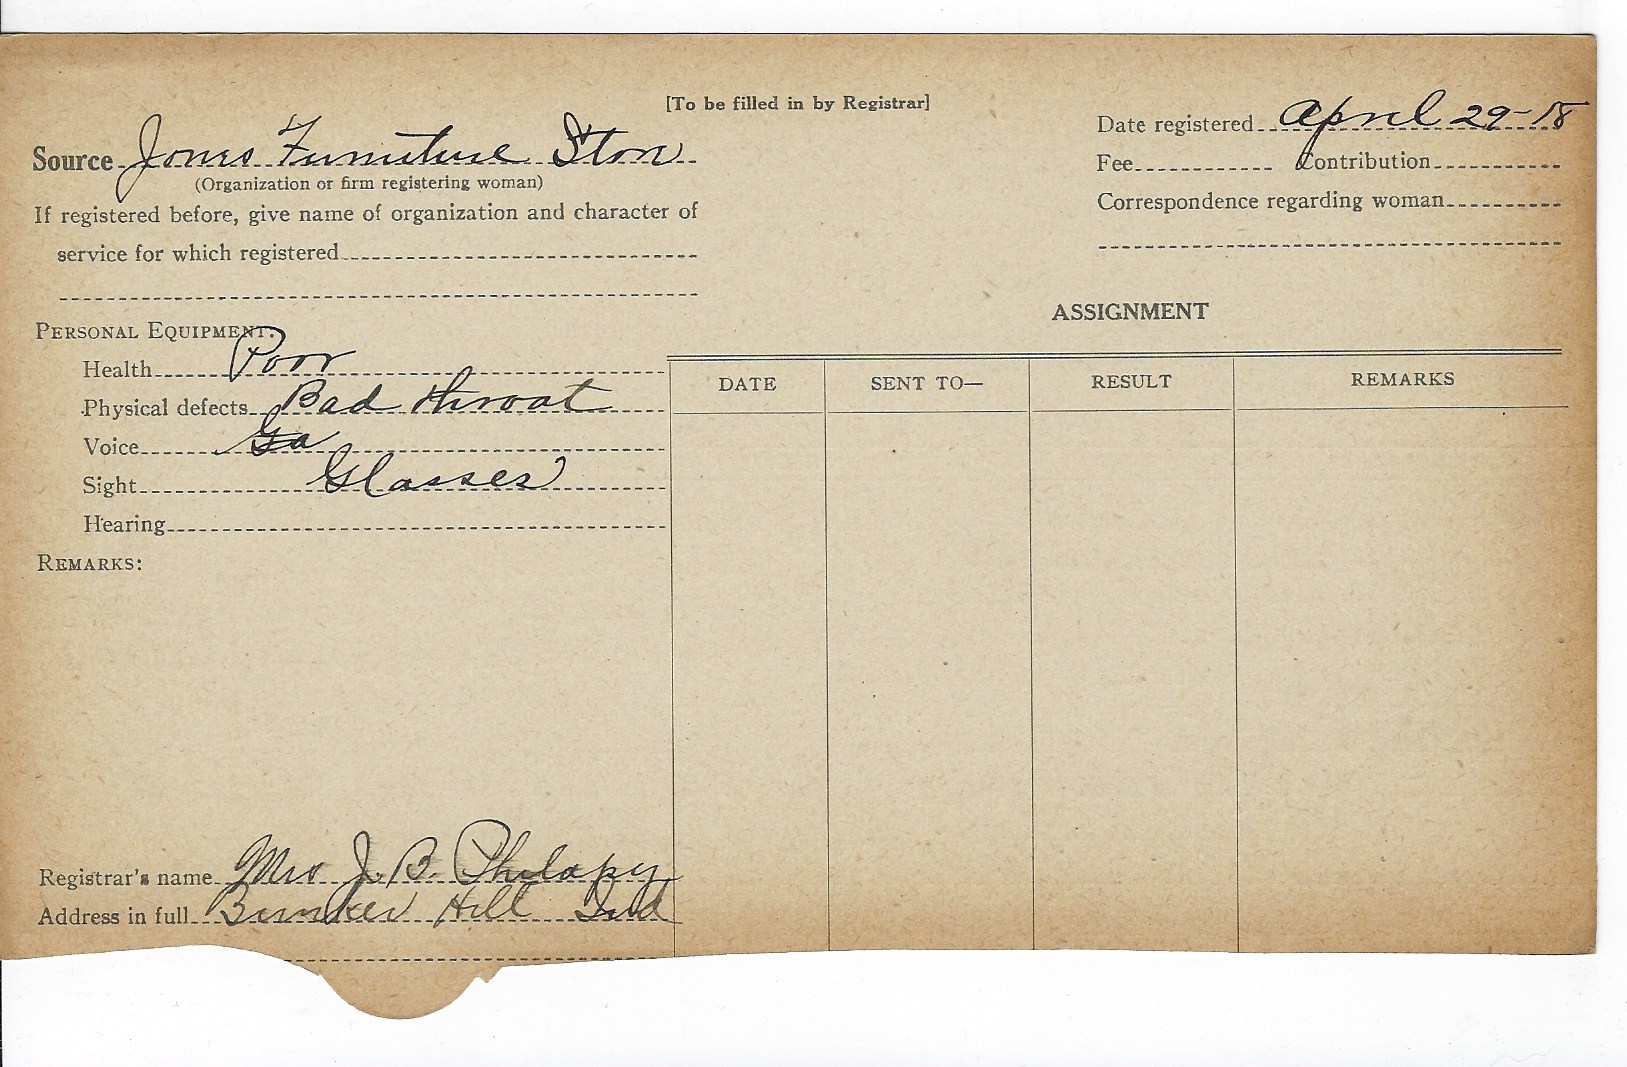 [To be filled in by Registrar]
Source Jones Furniture Store
(Organization or firm registering woman)
If registered before, give name of organization and character of
service for which registered
Date registered April 29-18
Fee Contribution
Correspondence regarding woman
PERSONAL EQUIPMENT:
Health Poor
Physical defects Bad throat
Voice
Sight Glasses
Hearing
REMARKS:
ASSIGNMENT
DATE SENT TO— RESULT REMARKS
Registrar's name Mrs J. B. Philapy
Address in full Bunker Hill Ind